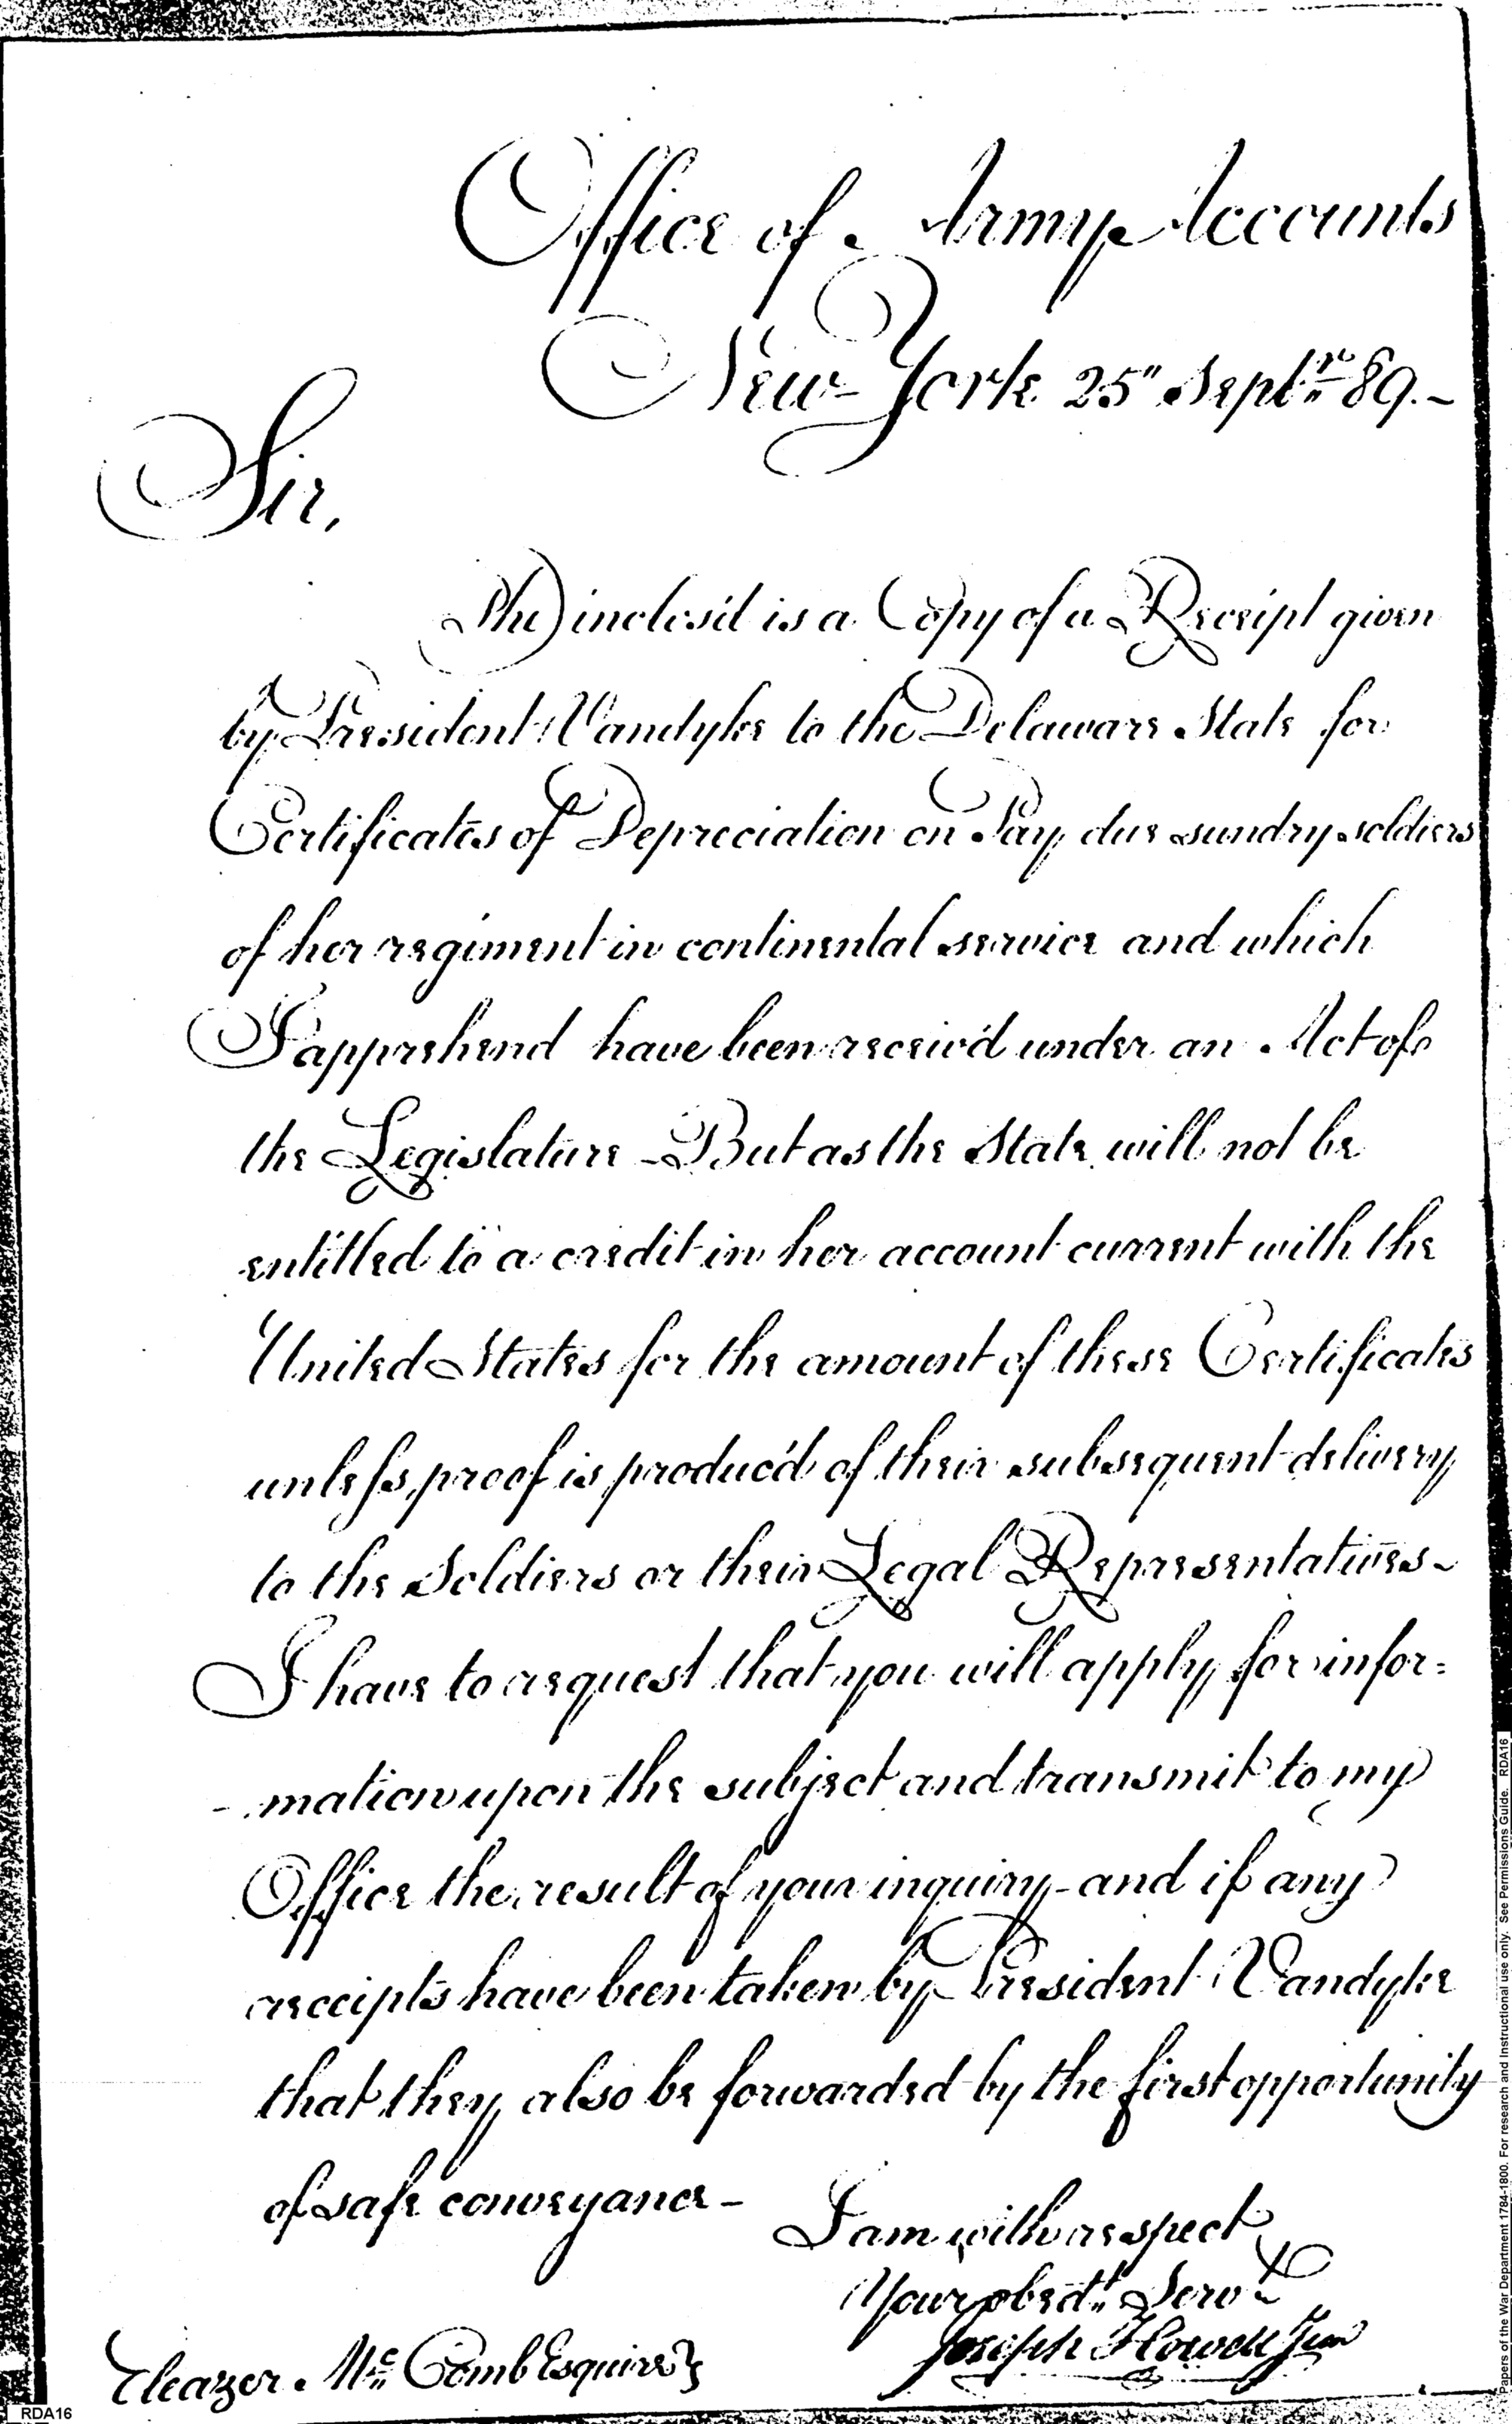 Office of Army Accounts
New-York 25" Septr. 89.-
Sir,
The inclos'd is a Copy of a Receipt given
by President Vandyke to the Delaware State for
Certificates of Depreciation on Pay due sundry soldiers
of her regiment in continental service and which
I apprehend have been receiv'd under an Act of
the Legislature - But as the State will not be
entitled to a credit in her account current with the
United States for the amount of these Certificates
unless proof is produc'd of their subsequent delivery
to the Soldiers or their Legal Representatives -
I have to request that you will apply for infor=
-mation upon the subject and transmit to my
Office the result of your inquiry - and if any
receipts have been taken by President Vandyke
that they also be forwarded by the first opportunity
of safe conveyance -
I am with respect
Your obedt. Servt.
Joseph Howell Jun
Eleazer Mc. Comb Esquire
RDA16
Papers of the War Department 1784-1800. For research and Instructional use only. See Permissions Guide. RDA16